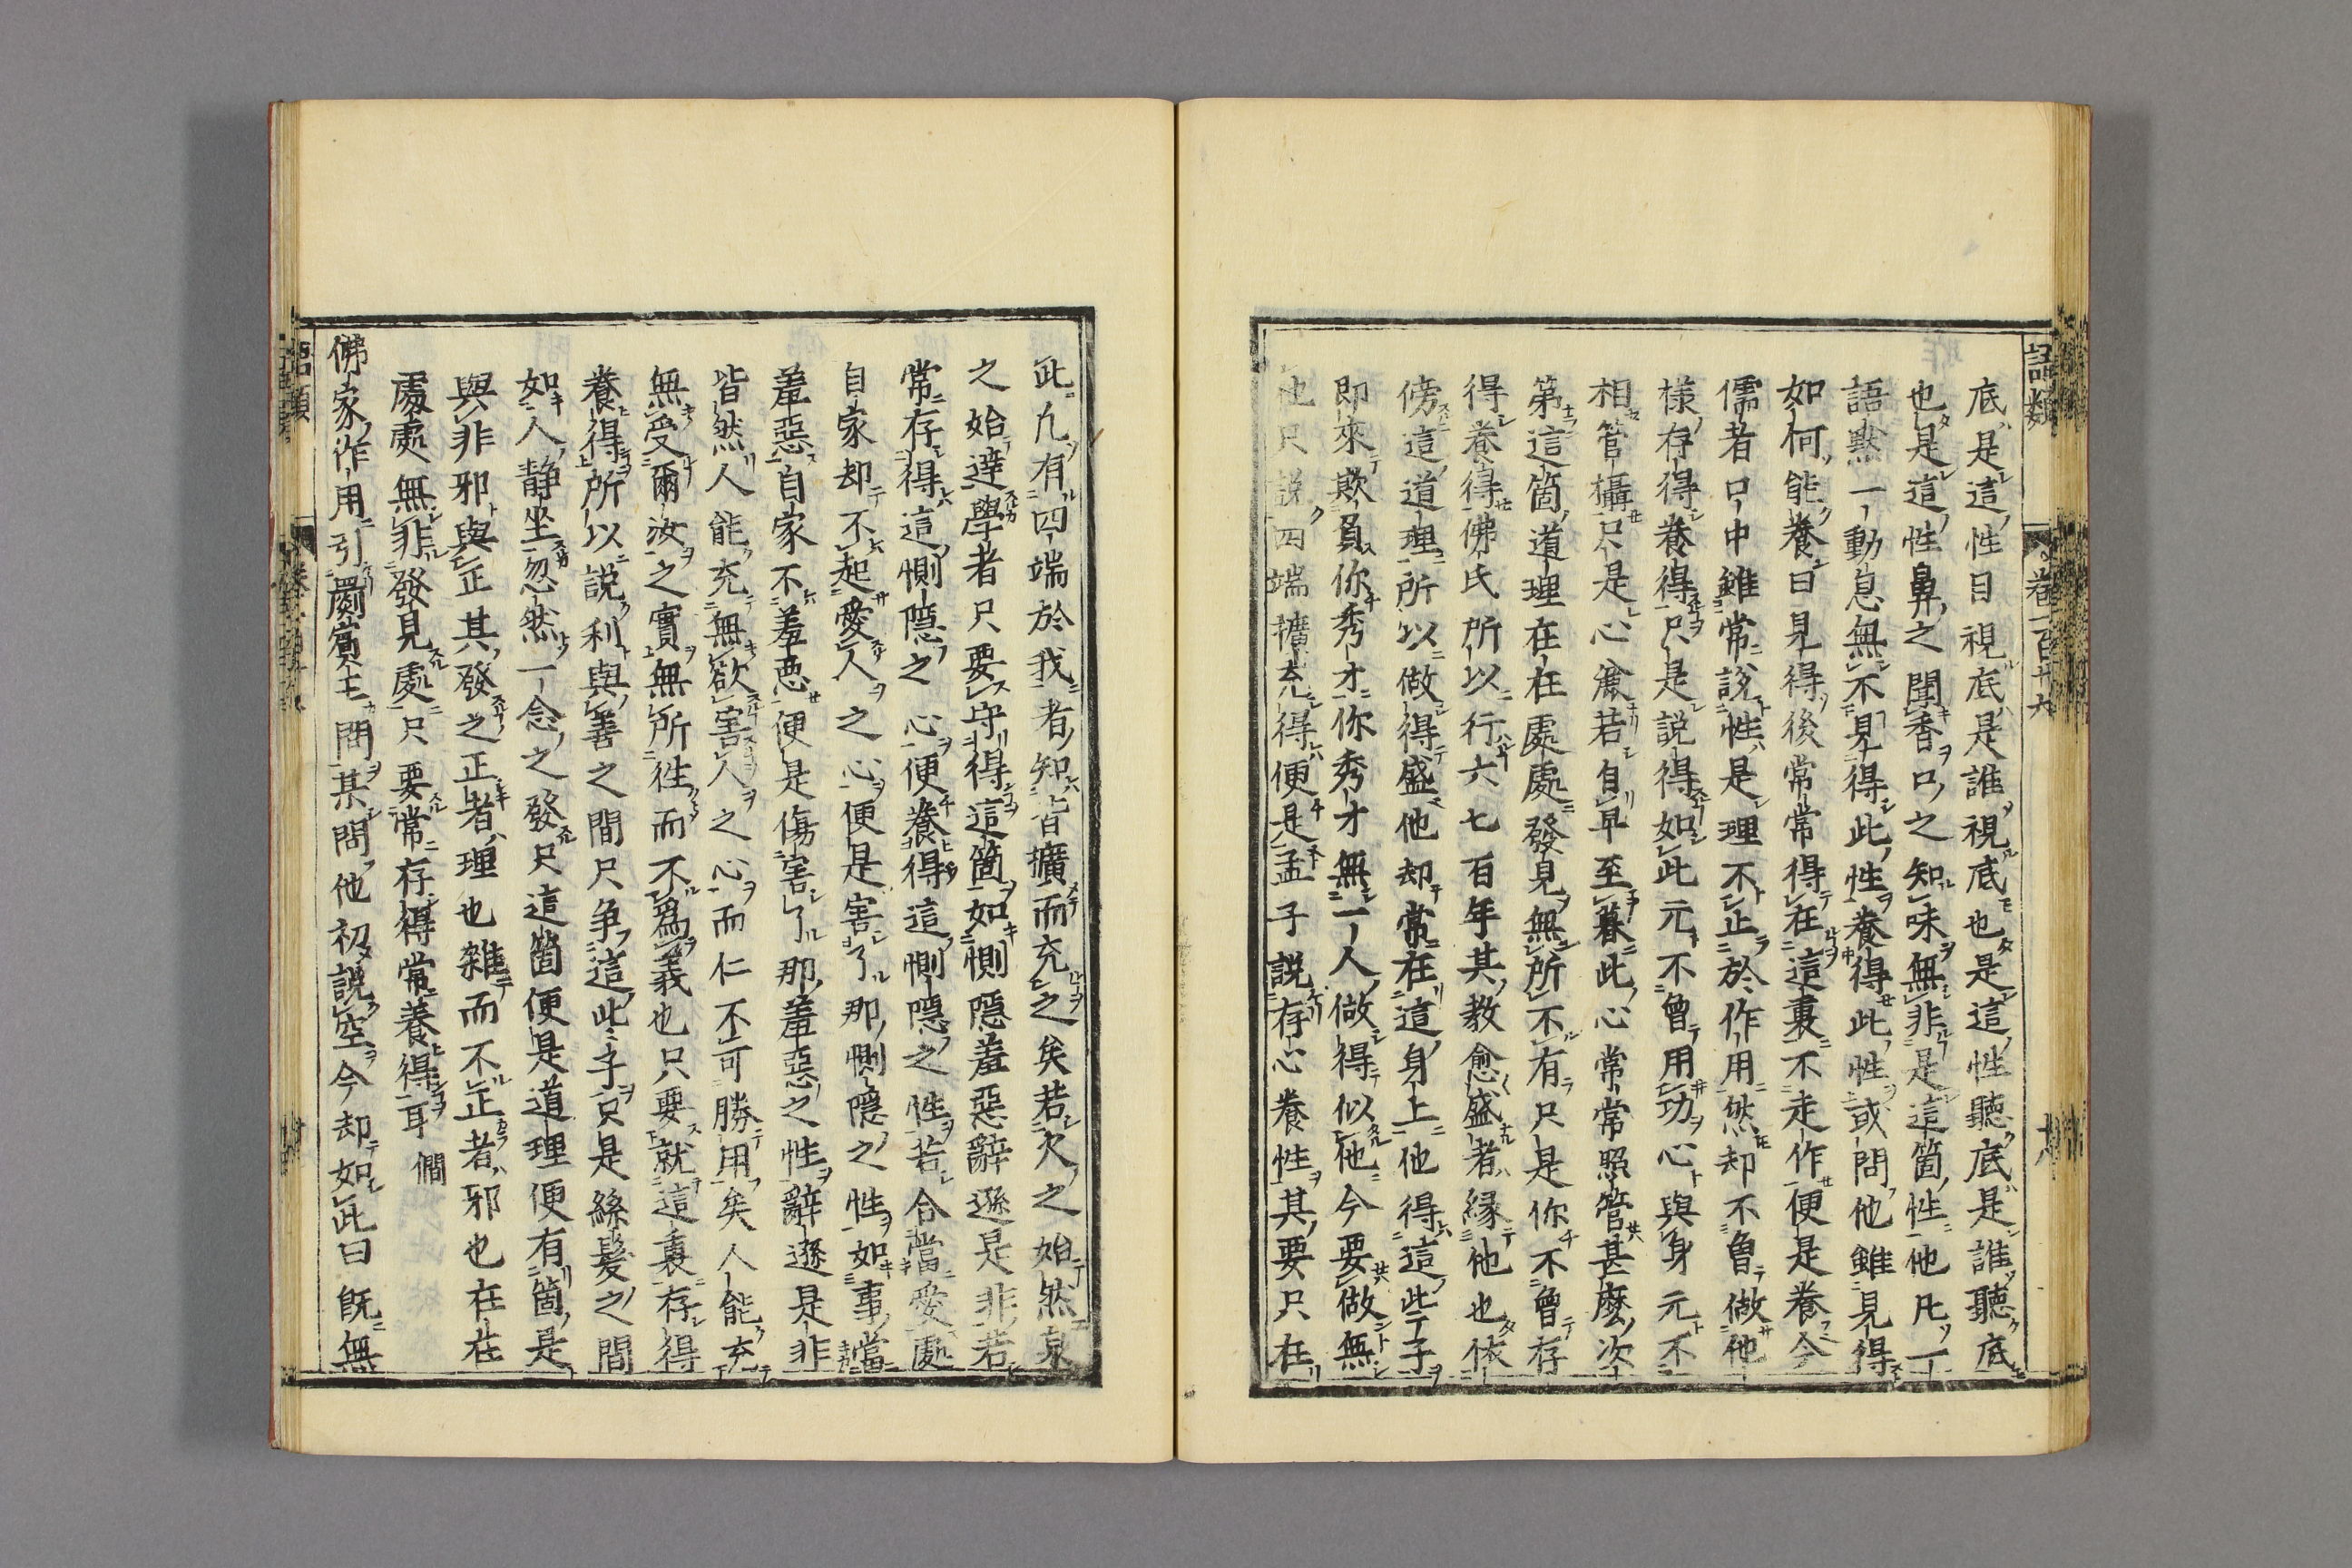 語類 卷一百廿六
底是這性目視底是誰視底也是這性聽底是誰聽底
也是這性鼻之聞香口之知味無非是這箇性他凡一
語默一動息無不見得此性養得此性或問他雖見得
如何能養曰見得後常常得在這裏不走作便是養今
儒者口中雖常說性是理不止於作用然却不曾做他
樣存得養得只是說得如此元不曾用功心與身元不
相管攝只是心麄若自早至暮此心常常照管甚麽次
第這箇道理在在處處發見無所不有只是你不曾存
得養得佛氏所以行六七百年其教愈盛者緣他也依
傍這道理所以做得盛他却常在這身上他得這些子
即來欺負你秀才你秀才無一人做得似他今要做無
他只說四端擴充得便是孟子說存心養性其要只在
此凢有四端於我者知皆擴而充之矣若火之始然泉
之始達學者只要守得這箇如惻隱羞惡辭遜是非若
常存得這惻隱之心便養得這惻隱之性若合當愛處
自家却不起愛人之心便是害了那惻隱之性如事當
羞惡自家不羞惡便是傷害了那羞惡之性辭遜是非
皆然人能充無欲害人之心而仁不可勝用矣人能充
無受爾汝之實無所往而不爲義也只要就這裏存得
養得所以說利與善之間只爭這些子只是絲髮之間
如人靜坐忽然一念之發只這箇便是道理便有箇是
與非邪與正其發之正者理也雜而不正者邪也在在
處處無非發見處只要常存得常養得耳 僩
佛家作用引罽賓王問某問他初說空今却如此曰既無
語類